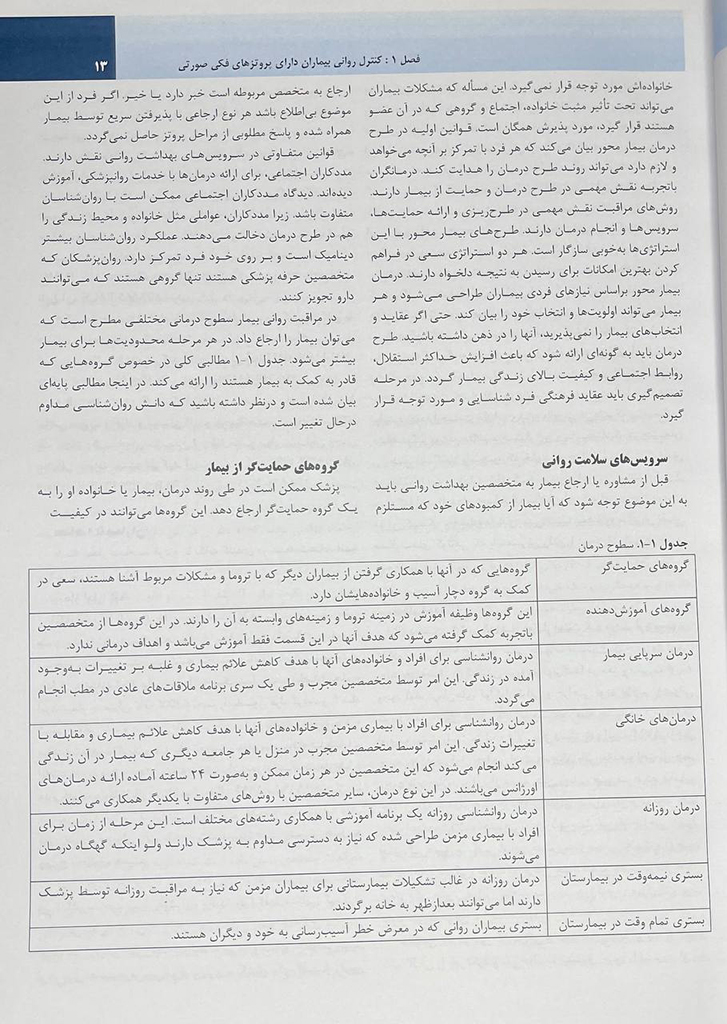 فصل ۱ : کنترل روانی بیماران دارای پروتزهای فکی صورتی
۱۳
خانواده‌اش مورد توجه قرار نمی‌گیرد. این مسأله که مشکلات بیماران
می‌تواند تحت تأثیر مثبت خانواده، اجتماع و گروهی که در آن عضو
هستند قرار گیرد، مورد پذیرش همگان است. قوانین اولیه در طرح
درمان بیمار محور بیان می‌کند که هر فرد با تمرکز بر آنچه می‌خواهد
و لازم دارد می‌تواند روند طرح درمان را هدایت کند. درمانگران
باتجربه نقش مهمی در طرح درمان و حمایت از بیمار دارند.
روش‌های مراقبت نقش مهمی در طرح‌ریزی و ارائه حمایت‌ها،
سرویس‌ها و انجام درمان دارند. طرح‌های بیمار محور با این
استراتژی‌ها به‌خوبی سازگار است. هر دو استراتژی سعی در فراهم
کردن بهترین امکانات برای رسیدن به نتیجه دلخواه دارند. درمان
بیمار محور براساس نیازهای فردی بیماران طراحی می‌شود و هر
بیمار می‌تواند اولویت‌ها و انتخاب خود را بیان کند. حتی اگر عقاید و
انتخاب‌های بیمار را نمی‌پذیرید، آنها را در ذهن داشته باشید. طرح
درمان باید به گونه‌ای ارائه شود که باعث افزایش حداکثر استقلال،
روابط اجتماعی و کیفیت بالای زندگی بیمار گردد. در مرحله
تصمیم‌گیری باید عقاید فرهنگی فرد شناسایی و مورد توجه قرار
گیرد.
سرویس‌های سلامت روانی
قبل از مشاوره یا ارجاع بیمار به متخصصین بهداشت روانی باید
به این موضوع توجه شود که آیا بیمار از کمبودهای خود که مستلزم
ارجاع به متخصص مربوطه است خبر دارد یا خیر. اگر فرد از این
موضوع بی‌اطلاع باشد هر نوع ارجاعی با پذیرفتن سریع توسط بیمار
همراه شده و پاسخ مطلوبی از مراحل پروتز حاصل نمی‌گردد.
قوانین متفاوتی در سرویس‌های بهداشت روانی نقش دارند.
مددکاران اجتماعی، برای ارائه درمان‌ها با خدمات روانپزشکی، آموزش
دیده‌اند. دیدگاه مددکاران اجتماعی ممکن است با روان‌شناسان
متفاوت باشد. زیرا مددکاران، عواملی مثل خانواده و محیط زندگی را
هم در طرح درمان دخالت می‌دهند. عملکرد روان‌شناسان بیشتر
دینامیک است و بر روی خود فرد تمرکز دارد. روان‌پزشکان که
متخصصین حرفه پزشکی هستند تنها گروهی هستند که می‌توانند
دارو تجویز کنند.
در مراقبت روانی بیمار سطوح درمانی مختلفی مطرح است که
می‌توان بیمار را ارجاع داد. در هر مرحله محدودیت‌ها برای بیمار
بیشتر می‌شود. جدول ۱-۱ مطالبی کلی در خصوص گروه‌هایی که
قادر به کمک به بیمار هستند را ارائه می‌کند. در اینجا مطالبی پایه‌ای
بیان شده است و درنظر داشته باشید که دانش روان‌شناسی مداوم
درحال تغییر است.
گروه‌های حمایت‌گر از بیمار
پزشک ممکن است در طی روند درمان، بیمار یا خانواده او را به
یک گروه حمایت‌گر ارجاع دهد. این گروه‌ها می‌توانند در کیفیت
جدول ۱-۱. سطوح درمان
گروه‌های حمایت‌گر
گروه‌هایی که در آنها با همکاری گرفتن از بیماران دیگر که با تروما و مشکلات مربوط آشنا هستند، سعی در
کمک به گروه دچار آسیب و خانواده‌هایشان دارد.
گروه‌های آموزش‌دهنده
این گروه‌ها وظیفه آموزش در زمینه تروما و زمینه‌های وابسته به آن را دارند. در این گروه‌ها از متخصصین
باتجربه کمک گرفته می‌شود که هدف آنها در این قسمت فقط آموزش می‌باشد و اهداف درمانی ندارد.
درمان سرپایی بیمار
درمان روانشناسی برای افراد و خانواده‌های آنها با هدف کاهش علائم بیماری و غلبه بر تغییرات به‌وجود
آمده در زندگی. این امر توسط متخصصین مجرب و طی یک سری برنامه ملاقات‌های عادی در مطب انجام
می‌گردد.
درمان‌های خانگی
درمان روانشناسی برای افراد با بیماری مزمن و خانواده‌های آنها با هدف کاهش علائم بیماری و مقابله با
تغییرات زندگی. این امر توسط متخصصین مجرب در منزل یا هر جامعه دیگری که بیمار در آن زندگی
می‌کند انجام می‌شود که این متخصصین در هر زمان ممکن و به‌صورت ۲۴ ساعته آماده ارائه درمان‌های
اورژانس می‌باشند. در این نوع درمان، سایر متخصصین با روش‌های متفاوت با یکدیگر همکاری می‌کنند.
درمان روزانه
درمان روانشناسی روزانه یک برنامه آموزشی با همکاری رشته‌های مختلف است. این مرحله از زمان برای
افراد با بیماری مزمن طراحی شده که نیاز به دسترسی مداوم به پزشک دارند ولو اینکه گهگاه درمان
می‌شوند.
بستری نیمه‌وقت در بیمارستان
درمان روزانه در غالب تشکیلات بیمارستانی برای بیماران مزمن که نیاز به مراقبت روزانه توسط پزشک
دارند اما می‌توانند بعدازظهر به خانه برگردند.
بستری تمام وقت در بیمارستان
بستری بیماران روانی که در معرض خطر آسیب‌رسانی به خود و دیگران هستند.